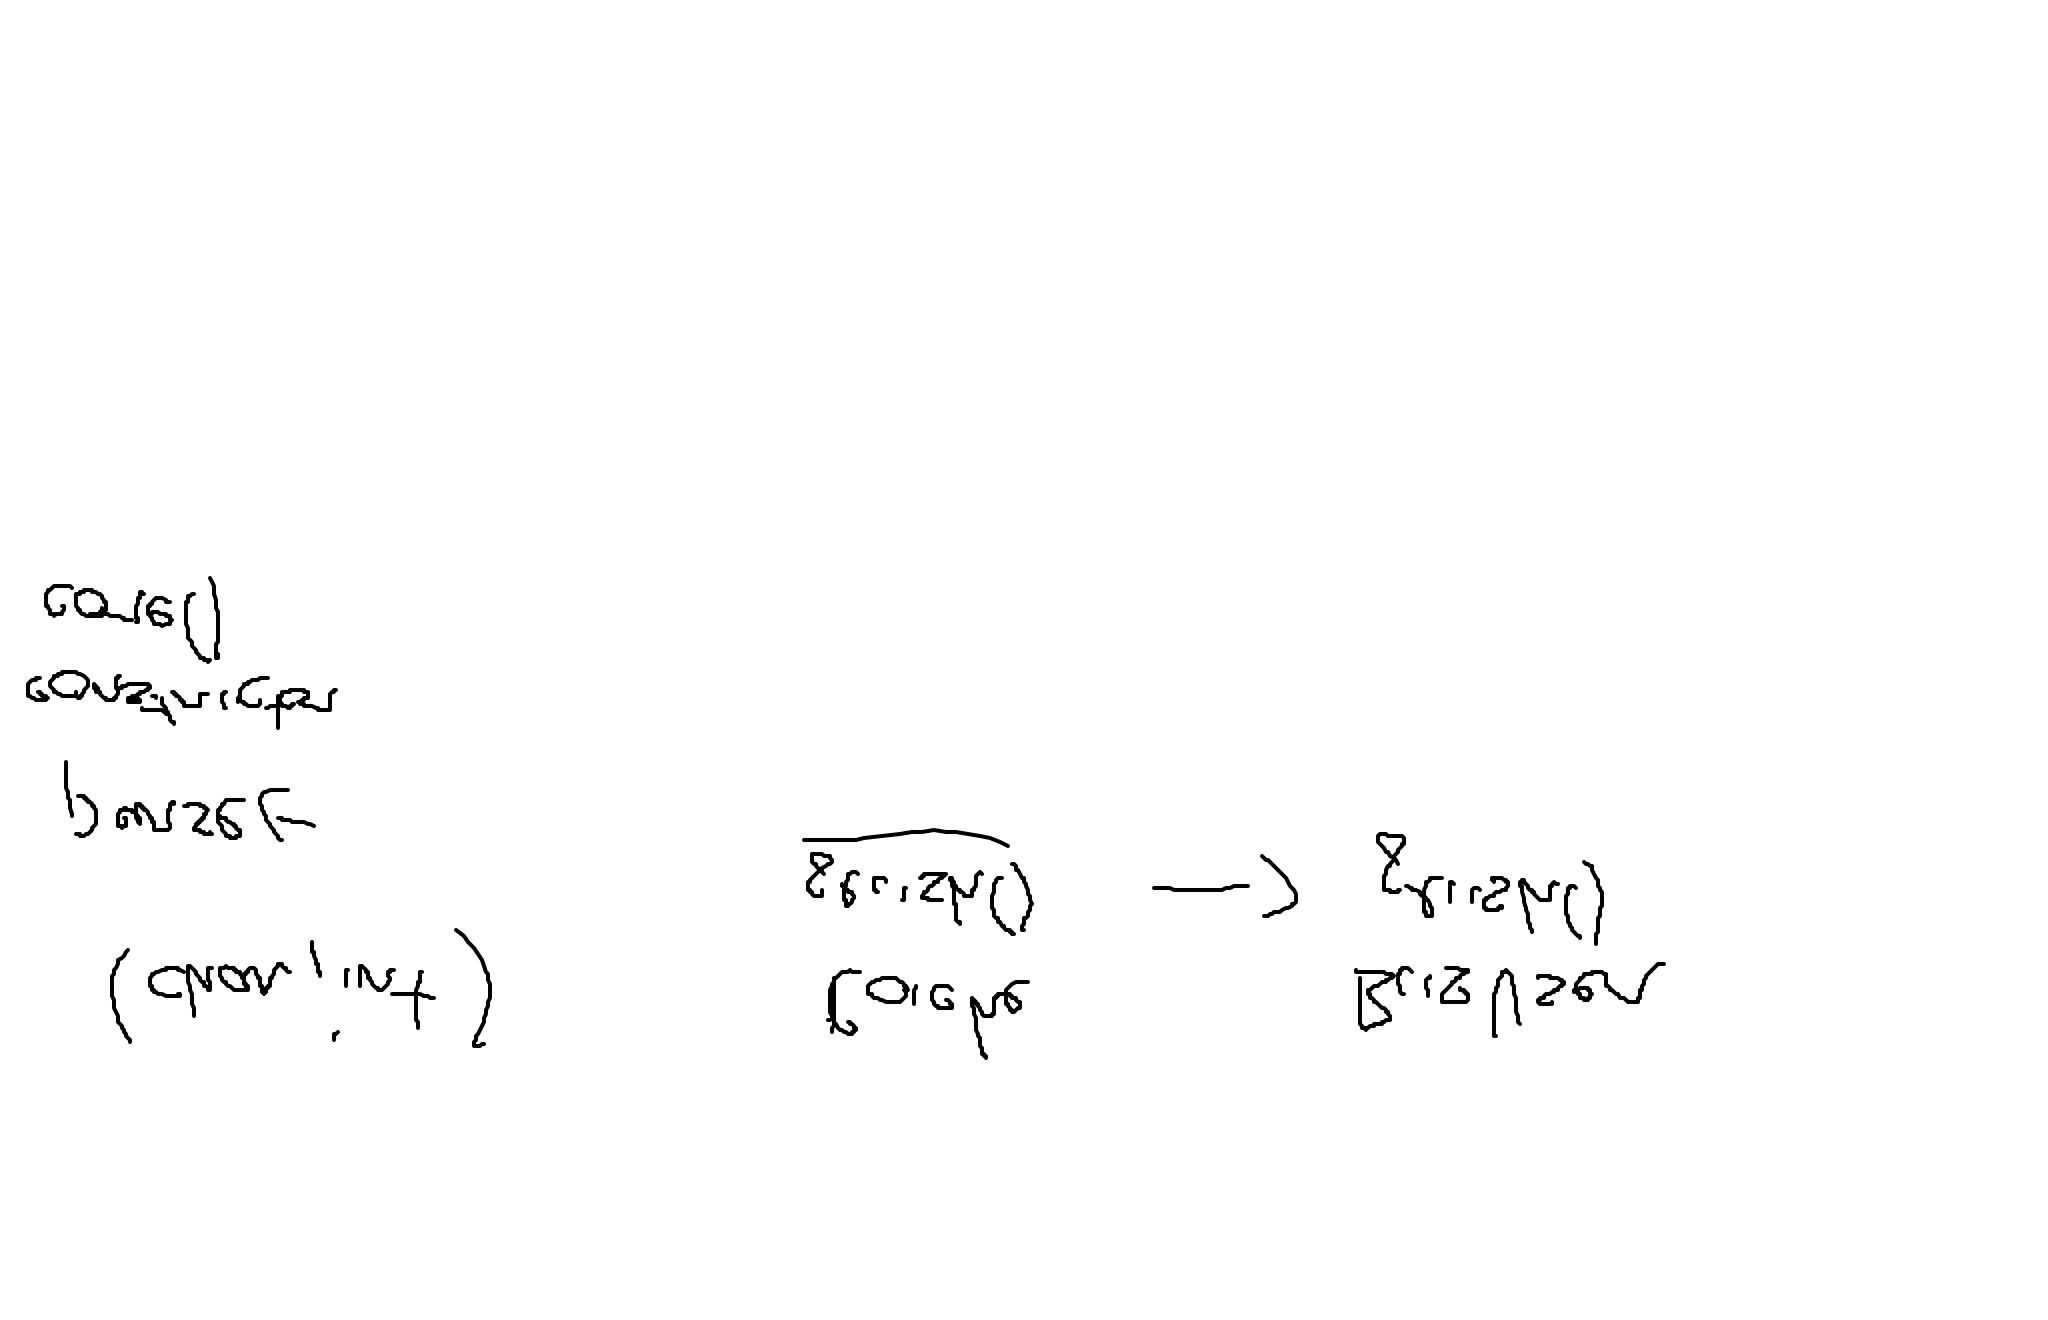 (char, int)
parse ←
constructor
core()
Cache
flush() → flush()
BusUser